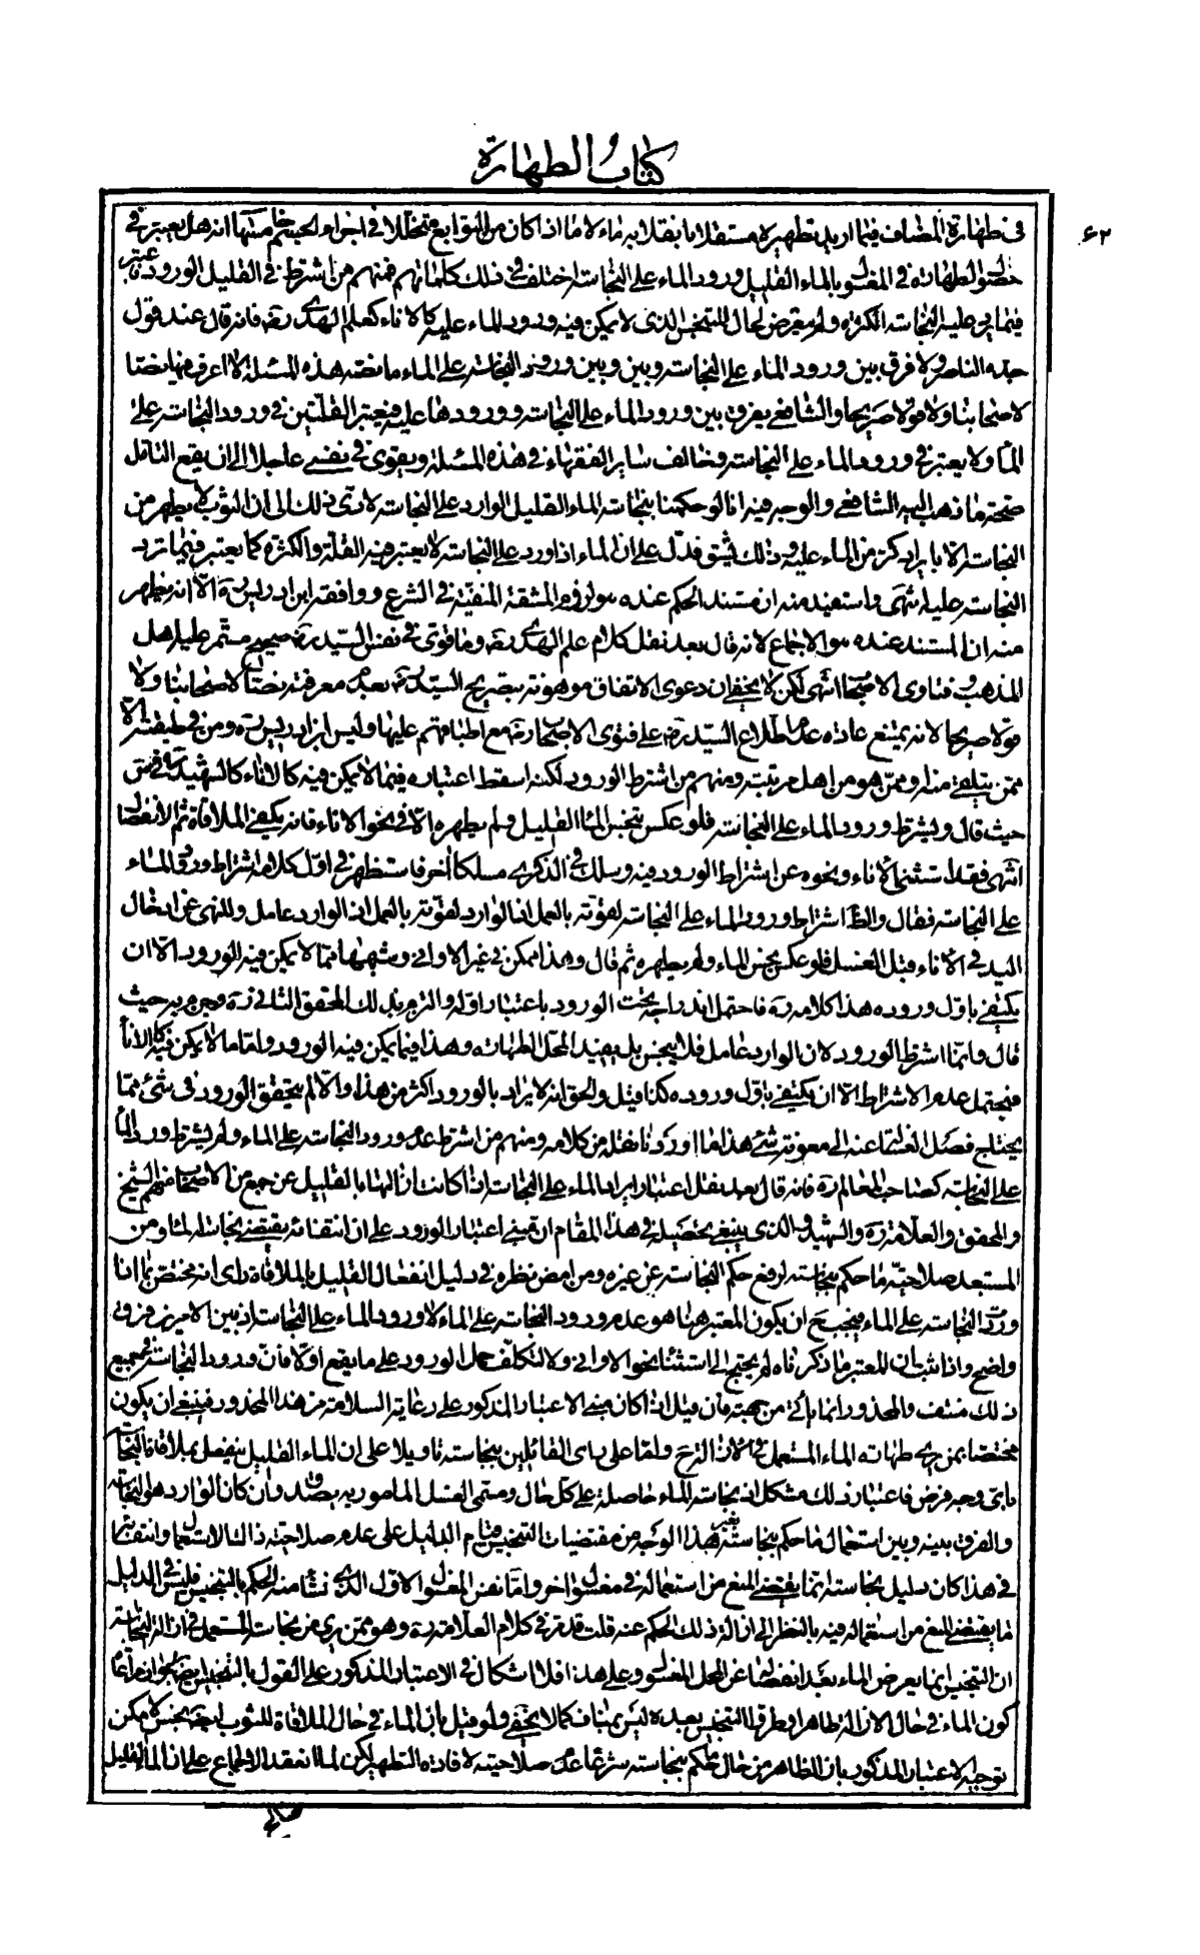 كتاب الطهارة
٤٢
فى طهارة المضاف فيما اريد تطهيره مستقلا بانقلابه ماء لا ما اذا كان من التوابع متخللا فى اجزاء الجسم خاتمة منها انه هل يعتبر فى
حصول الطهارة فى المغسول بالماء القليل ورود الماء على النجاسة اختلف فى ذلك كلماتهم فمنهم من اشترط فى القليل الورود فاعتبر
فيما يرد عليه النجاسة الكثرة ولم يتعرض لحال المتنجس الذى لا يمكن فيه ورود الماء عليه كالاناء كعلم الهدى ره فانه قال عند قول
جده الناصر ولا فرق بين ورود الماء على النجاسة وبين ورود النجاسة على الماء ما نصه هذه المسئلة لا اعرف فيها نصا
لاصحابنا ولا قولا صريحا والشافعى يفرق بين ورود الماء على النجاسة وورودها عليه فيعتبر القلتين فى ورود النجاسة على
الماء ولا يعتبر فى ورود الماء على النجاسة وخالف ساير الفقهاء فى هذه المسئلة ويقوى فى نفسى عاجلا الى ان يقع التامل
صحة ما ذهب اليه الشافعى والوجه فيه انا لو حكمنا بنجاسة الماء القليل الوارد على النجاسة لادى ذلك الى ان الثوب لا يطهر من
النجاسة الا بايراد كر من الماء عليه وذلك يشق فدل على ان الماء اذا ورد على النجاسة لا يعتبر فيه القلة والكثرة كما يعتبر فيما ترد
النجاسة عليه انتهى واستفيد منه ان مستند الحكم عنده هو لزوم المشقة المنفية فى الشرع ووافقه ابن ادريس ره الا انه يظهر
منه ان المستند عنده هو الاجماع لانه قال بعد نقل كلام علم الهدى ره وما قوى فى نفس السيد ره صحيح مستمر على اصل
المذهب وفتاوى الاصحاب انتهى لكن لا يخفى ان دعوى الاتفاق موهونة بتصريح السيد ره بعدم معرفته نصا لاصحابنا ولا
قولا صريحا لانه يمتنع عادة عدم اطلاع السيد ره على فتوى الاصحاب ره مع اطباقهم عليها وليس ابن ادريس ره ومن فى طبقته الا
ممن يتلقى منه وممن هو من اهل مرتبته ومنهم من اشترط الورود لكنه اسقط اعتباره فيما لا يمكن فيه كالاناء كالشهيد ره فى س
حيث قال ويشترط ورود الماء على النجاسة فلو عكس تنجس الماء القليل ولم يطهره الا فى نحو الاناء فانه يكفى الملاقاة ثم الانفصال
انتهى فقد استثنى الاناء ونحوه عن اشتراط الورود فيه وسلك فى الذكرى مسلكا اخر فاستظهر فى اول كلامه اشتراط ورود الماء
على النجاسة فقال والظ اشتراط ورود الماء على النجاسة لقوته بالعمل اذ الوارد عامل وللنهى عن ادخال
اليد فى الاناء قبل الغسل فلو عكس نجس الماء ولم يطهره ثم قال وهذا ممكن فى غير الاوانى وشبهها مما لا يمكن فيه الورود الا ان
يكتفى باول وروده هذا كلامه ره فاحتمل اندراجه تحت الورود باعتبار اوله والتزم بذلك المحقق الثانى ره وجزم به حيث
قال وانما اشترط الورود لان الوارد عامل فلا ينجس بل يفيد المحل الطهارة وهذا فيما يمكن فيه الورود واما ما لا يمكن فيه كالاناء
فيحتمل عدم الاشتراط الا ان يكتفى باول وروده كذا قيل والحق انه لا يراد بالورود اكثر من هذا والا لم يتحقق الورود فى شئ مما
يحتاج فصل الغسالة عنه الى معونة شئ هذا ما اوردنا نقله من كلامه ومنهم من اشترط عدم ورود النجاسة على الماء ولم يشترط ورود الماء
على النجاسة كصاحب المعالم ره فانه قال بعد نقل اعتبار ايراد الماء على النجاسة اذا كانت ازالتها بالقليل عن جمع من الاصحاب منهم الشيخ
والمحقق والعلامة ره والشهيد والذى ينبغى تحصيله فى هذا المقام ان مبنى اعتبار الورود على ان انتفائه يقتضى نجاسة الماء ومن
المستبعد صلاحية ما حكم بنجاسته لرفع حكم النجاسة عن غيره ومن امعن نظره فى دليل انفعال القليل بالملاقاة راى انه مختص بما اذا
وردت النجاسة على الماء فيجب ح ان يكون المعتبر هنا هو عدم ورود النجاسة على الماء لا ورود الماء على النجاسة اذ بين الامرين فرق
واضح واذا ثبت ان المعتبر ما ذكرناه لم يحتج الى استثناء نحو الاوانى ولا التكلف بحمل الورود على ما يقع اولا فان ورود النجاسة فى جميع
ذلك منتف والمحذور انما ياتى من جهته فان قيل اذا كان مبنى الاعتبار المذكور على رعاية السلامة من هذا المحذور فينبغى ان يكون
مختصا بمن يرى طهارة الماء المستعمل فى الازالة ح واما على راى القائلين بنجاسته تاويلا على ان الماء القليل ينفعل بملاقاة النجاسة
باى وجه فرض فاعتبار ذلك مشكل اذ نجاسة الماء حاصلة على كل حال ومسمى الغسل المامور به يصدق وان كان الوارد هو النجاسة
والفرق بينه وبين استعمال ما حكم بنجاسته بغير هذا الوجه من مقتضيات التنجيس قيام الدليل على عدم صلاحية ذاك للاستعمال وانتفائه
فى هذا كان دليل نجاسته انما يقتضى المنع من استعماله فى مغسول اخر واما نفس المغسول الاول الذى نشا منه الحكم بالتنجيس فليس فى الدليل
ما يقتضى المنع من استعماله فيه بالنظر الى ازالة ذلك الحكم عنه قلت قد مر فى كلام العلامة ره وهو ممن يرى نجاسة المستعمل فى ازالة النجاسة
ان التنجيس انما يعرض الماء بعد انفصاله عن المحل المغسول وعلى هذا فلا اشكال فى الاعتبار المذكور على القول بالتنجيس ايضا
كون الماء فى حال الازالة طاهرا وطرو التنجيس بعده ليس بمناف كما لا يخفى ولو قيل بان الماء فى حال الملاقاة للثوب نجس لامكن
توجيه الاعتبار المذكور بان الظاهر من حال ما حكم بنجاسته شرعا عدم صلاحيته لافادة التطهير لكن لما انعقد الاجماع على ان الماء القليل
صالح